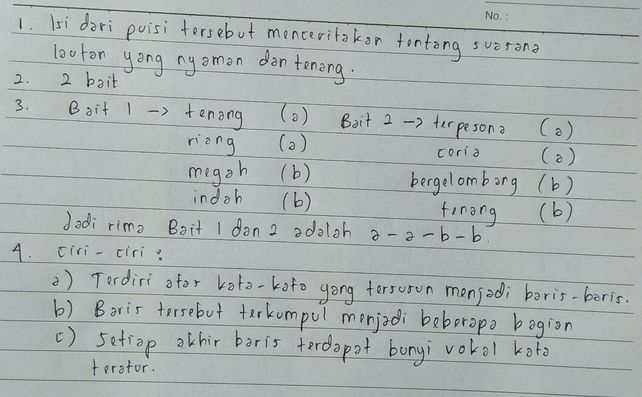 No. :
1. Isi dari puisi tersebut menceritakan tentang suasana
lautan yang nyaman dan tenang.
2. 2 bait
3. Bait 1 -> tenang (a) Bait 2 -> terpesona (a)
riang (a) ceria (a)
megah (b) bergelombang (b)
indah (b) tenang (b)
Jadi rima Bait 1 dan 2 adalah a-a-b-b.
4. Ciri-ciri :
a) Terdiri atas kata-kata yang tersusun menjadi baris-baris.
b) Baris tersebut terkumpul menjadi beberapa bagian
c) Setiap akhir baris terdapat bunyi vokal kata
teratur.